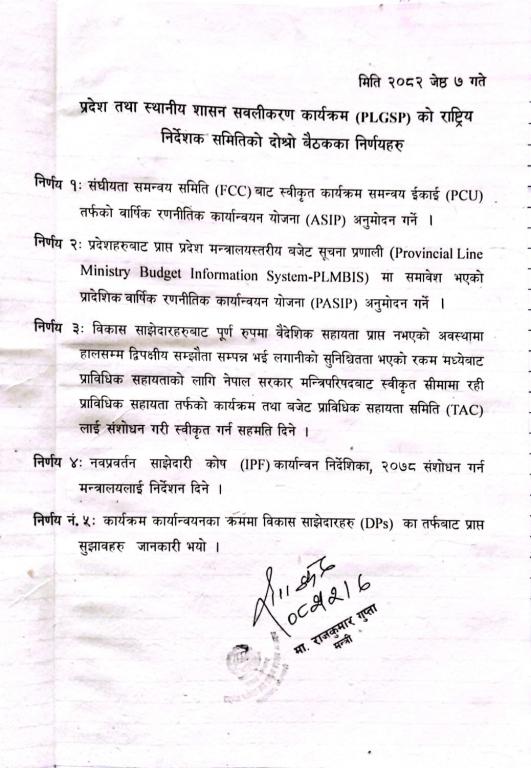 मिति २०८२ जेष्ठ ७ गते
प्रदेश तथा स्थानीय शासन सवलीकरण कार्यक्रम (PLGSP) को राष्ट्रिय
निर्देशक समितिको दोश्रो बैठकका निर्णयहरु
निर्णय १: संघीयता समन्वय समिति (FCC) बाट स्वीकृत कार्यक्रम समन्वय ईकाई (PCU)
तर्फको वार्षिक रणनीतिक कार्यान्वयन योजना (ASIP) अनुमोदन गर्ने ।
निर्णय २: प्रदेशहरुबाट प्राप्त प्रदेश मन्त्रालयस्तरीय बजेट सूचना प्रणाली (Provincial Line
Ministry Budget Information System-PLMBIS) मा समावेश भएको
प्रादेशिक वार्षिक रणनीतिक कार्यान्वयन योजना (PASIP) अनुमोदन गर्ने ।
निर्णय ३: विकास साझेदारहरुबाट पूर्ण रुपमा बैदेशिक सहायता प्राप्त नभएको अवस्थामा
हालसम्म द्विपक्षीय सम्झौता सम्पन्न भई लगानीको सुनिश्चितता भएको रकम मध्येबाट
प्राविधिक सहायताको लागि नेपाल सरकार मन्त्रिपरिषदबाट स्वीकृत सीमामा रही
प्राविधिक सहायता तर्फको कार्यक्रम तथा बजेट प्राविधिक सहायता समिति (TAC)
लाई संशोधन गरी स्वीकृत गर्न सहमति दिने ।
निर्णय ४: नवप्रवर्तन साझेदारी कोष (IPF) कार्यान्वन निर्देशिका, २०७८ संशोधन गर्न
मन्त्रालयलाई निर्देशन दिने ।
निर्णय नं. ५: कार्यक्रम कार्यान्वयनका क्रममा विकास साझेदारहरु (DPs) का तर्फबाट प्राप्त
सुझावहरु जानकारी भयो ।
मा. राजकुमार गुप्ता
मन्त्री